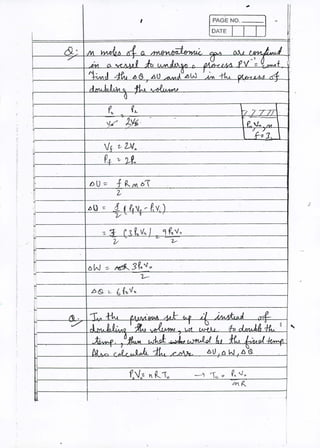 PAGE NO.
DATE
Q: n moles of a monoatomic gas are confined
in a vessel to undergo a process PV⁻¹ = const.
Find the ΔQ, ΔU and ΔW in the process of
doubling the volume.
P₀/V₀ = P₂/2V₀
P₀, V₀, n
f = 3
Vf = 2V₀
Pf = 2P₀
ΔU = f/2 R n ΔT
ΔU = f/2 (PfVf - PᵢVᵢ)
= 3/2 (3P₀V₀) = 9P₀V₀/2
ΔW = 3P₀V₀/2
ΔQ = 6P₀V₀
Q: In the previous set up if instead of
doubling the volume, we were to double the
temp., then what would be the final temp.
Also calculate the corr. ΔU, ΔW, ΔQ
P₀V₀ = nRT₀ → T₀ = P₀V₀/nR